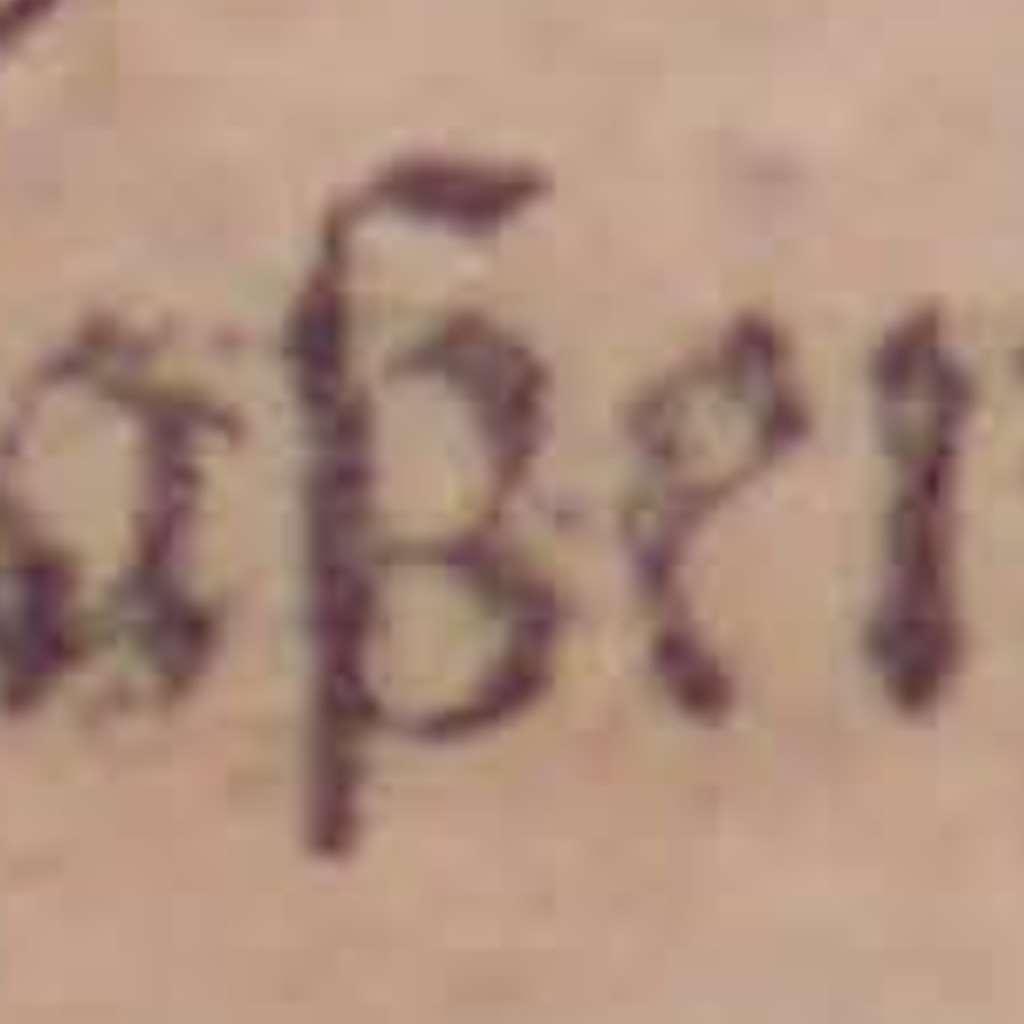 aßer